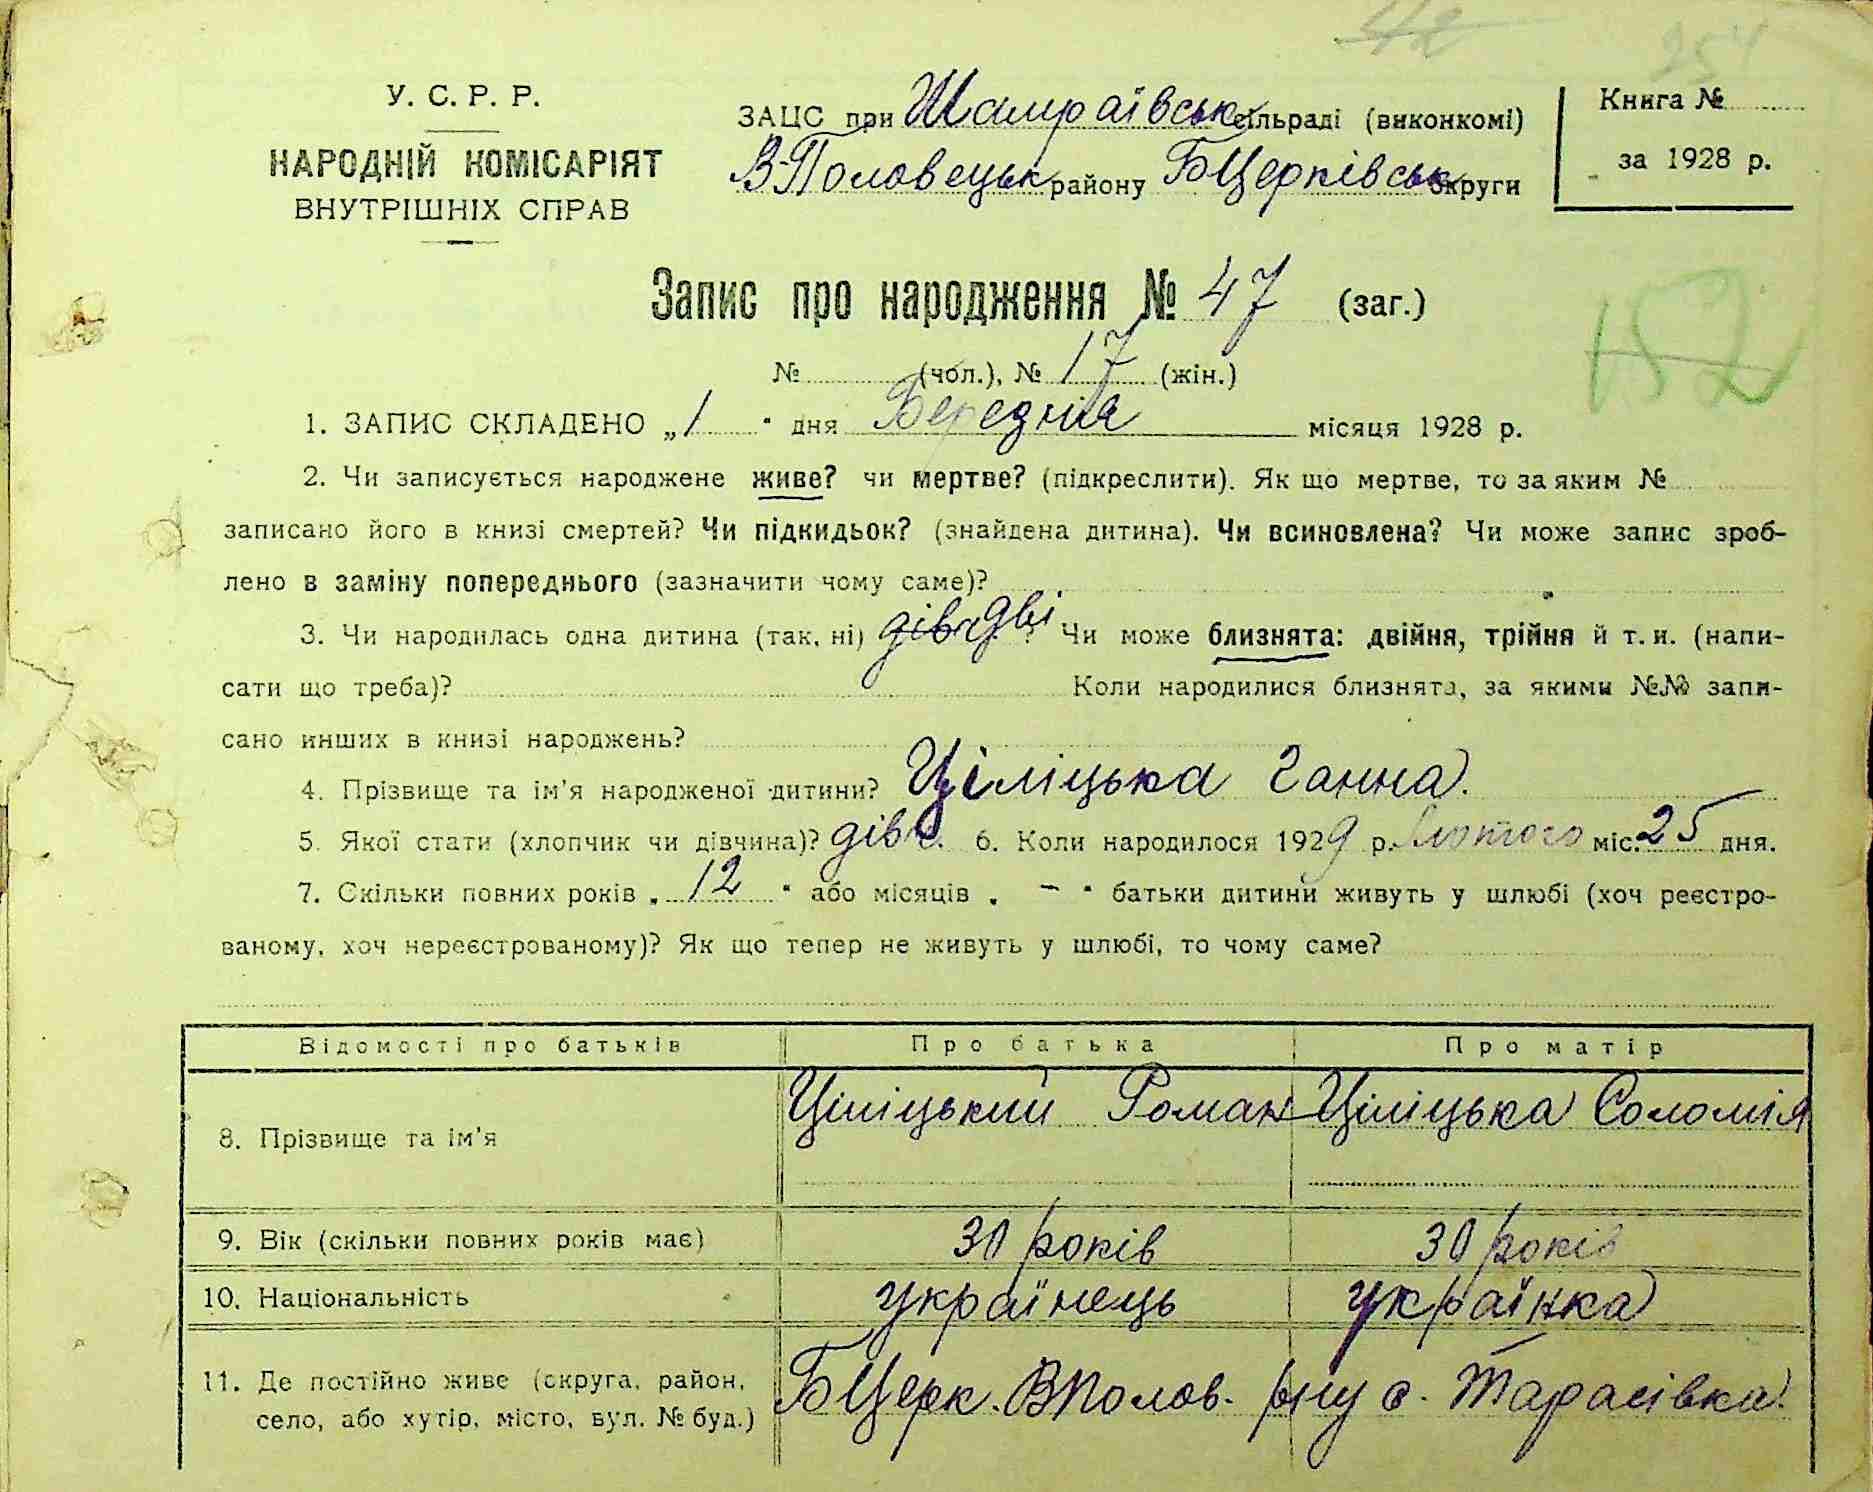 42
254
У. С. Р. Р.
НАРОДНІЙ КОМІСАРІЯТ
ВНУТРІШНІХ СПРАВ
ЗАЦС при Шамраївськ сільраді (виконкомі)
В-Половецьк району БЦерківськ округи
Книга №
за 1928 р.
Запис про народження № 47 (заг.)
152
№ (чол.), № 17 (жін.)
1. ЗАПИС СКЛАДЕНО „1“ дня Березня місяця 1928 р.
2. Чи записується народжене живе? чи мертве? (підкреслити). Як що мертве, то за яким №
записано його в книзі смертей? Чи підкидьок? (знайдена дитина). Чи всиновлена? Чи може запис зроб-
лено в заміну попереднього (зазначити чому саме)?
3. Чи народилась одна дитина (так, ні) дівч дві ? Чи може близнята: двійня, трійня й т. и. (напи-
сати що треба)? Коли народилися близнята, за якими №№ запи-
сано инших в книзі народжень?
4. Прізвище та ім'я народженої дитини? Ціліцька Ганна.
5. Якої стати (хлопчик чи дівчина)? дівч. 6. Коли народилося 1929 р. Лютого міс. 25 дня.
7. Скільки повних років „ 12 “ або місяців „ – “ батьки дитини живуть у шлюбі (хоч реєстро-
ваному, хоч нереєстрованому)? Як що тепер не живуть у шлюбі, то чому саме?
Відомості про батьків Про батька Про матір
8. Прізвище та ім'я Ціліцький Роман Ціліцька Соломія
9. Вік (скільки повних років має) 30 років 30 років
10. Національність українець українка
11. Де постійно живе (округа, район,
село, або хутір, місто, вул. № буд.) БЦерк. ВПолов. рну с. Тарасівка.